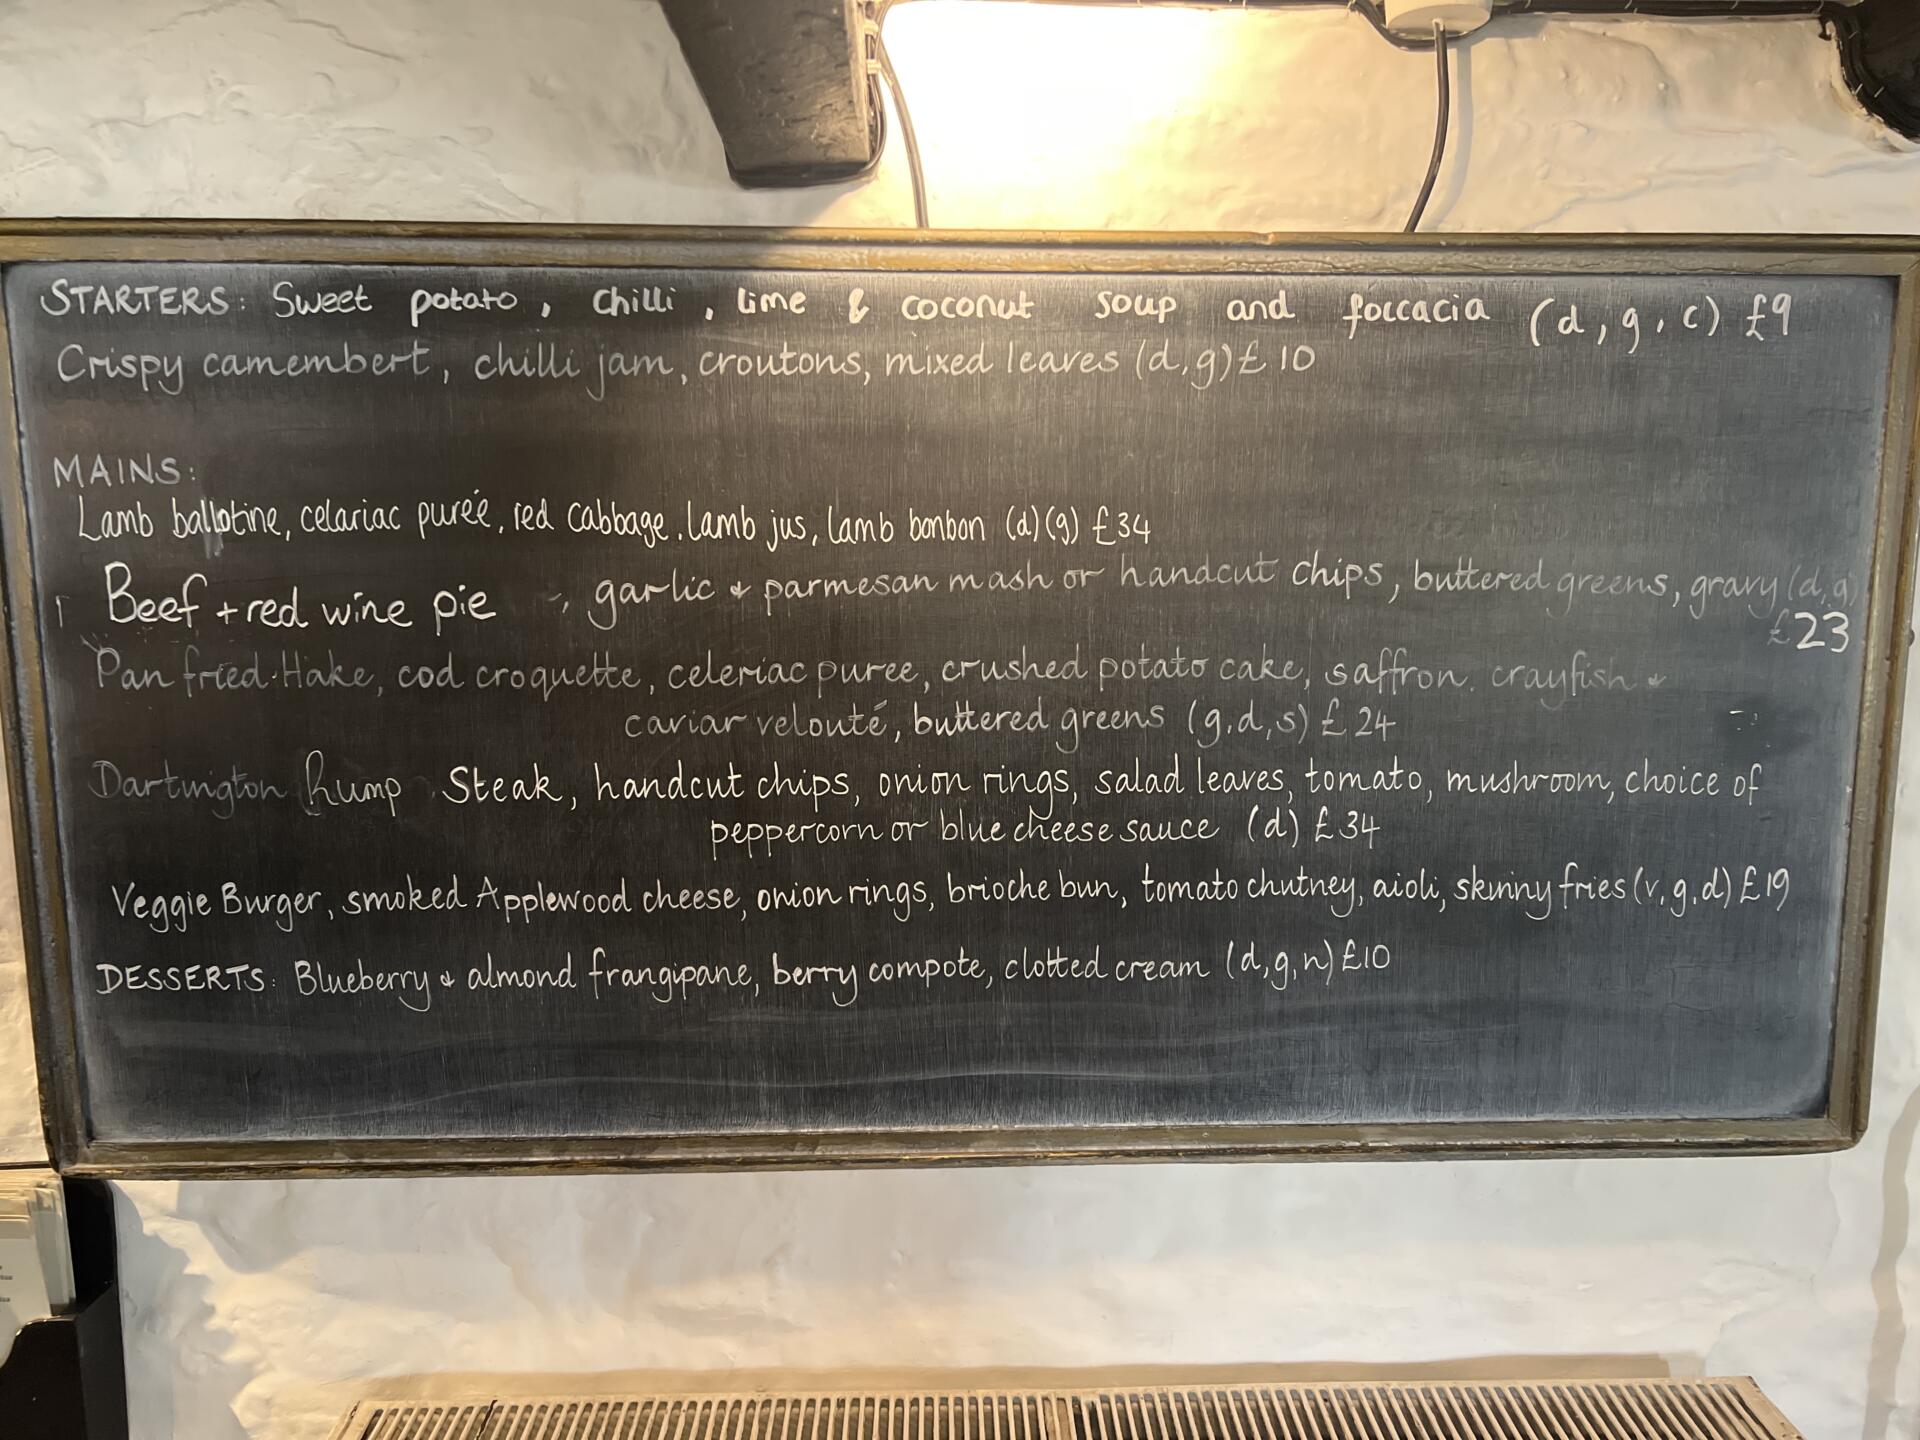 STARTERS: Sweet potato, chilli, lime & coconut soup and foccacia (d, g, c) £9
Crispy camembert, chilli jam, croutons, mixed leaves (d,g) £10
MAINS:
Lamb ballotine, celariac purée, red cabbage, lamb jus, lamb bonbon (d)(g) £34
Beef + red wine pie -, garlic & parmesan mash or handcut chips, buttered greens, gravy (d,g)
£23
Pan fried Hake, cod croquette, celeriac puree, crushed potato cake, saffron, crayfish &
caviar velouté, buttered greens (g,d,s) £24
Dartington Rump Steak, handcut chips, onion rings, salad leaves, tomato, mushroom, choice of
peppercorn or blue cheese sauce (d) £34
Veggie Burger, smoked Applewood cheese, onion rings, brioche bun, tomato chutney, aioli, skinny fries (v,g,d) £19
DESSERTS: Blueberry & almond frangipane, berry compote, clotted cream (d,g,n) £10